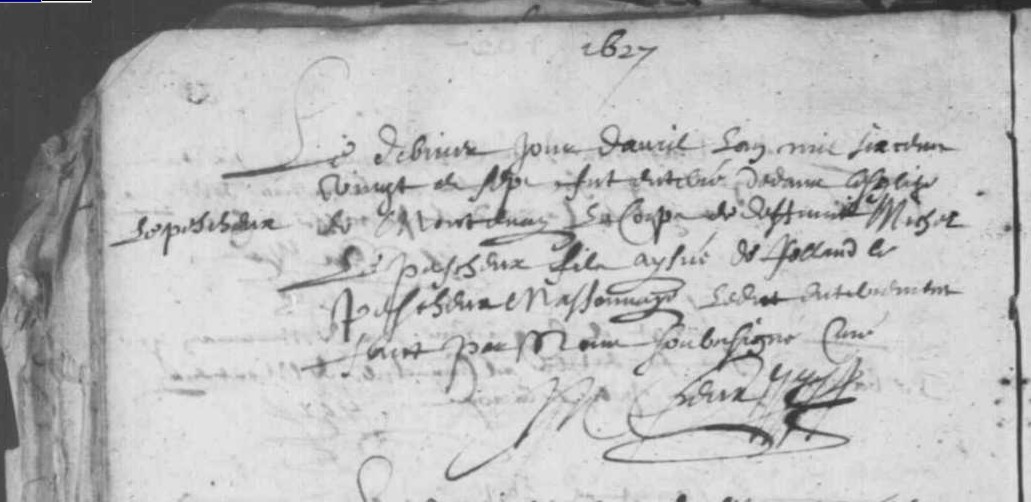 1627
Le jour dauril Lan mil six cens
vingt et sept fut enterré dedans leglize
Lepescheux
de Montenay Le Corps de deffunct Michel
Le pescheux filz aysné de Rolland le
Pescheux Massonnaye Ledict enterrement
faict par Moy soubsigné Curé